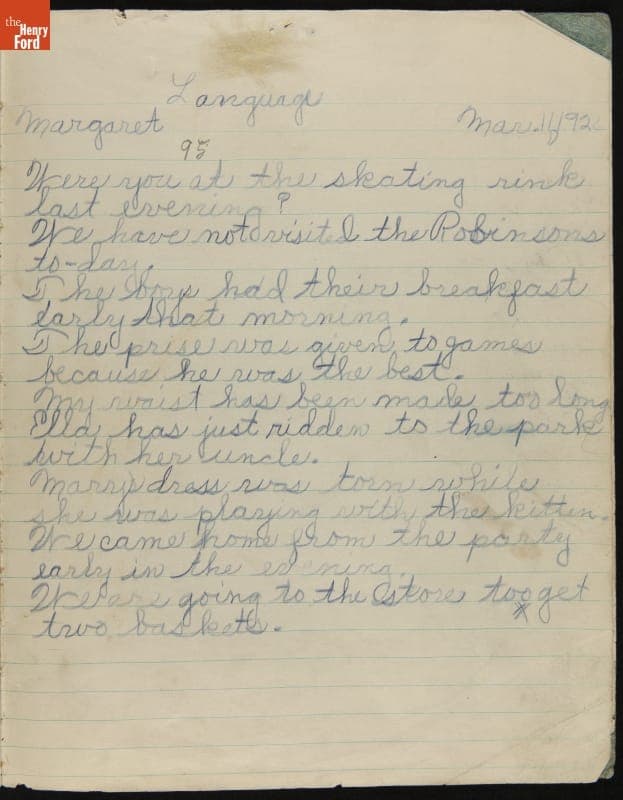 the
Henry
Ford
Language
Margaret Mar. 11, 192
95
Were you at the skating rink
last evening?
We have not visited the Robinsons
to-day.
The boys had their breakfast
early that morning.
The prise was given to games
because he was the best.
My waist has been made too long
Ella has just ridden to the park
with her uncle.
Marry dress was torn while
she was playing with the kitten.
We came home from the party
early in the evening.
We are going to the store too get
x
two baskets.